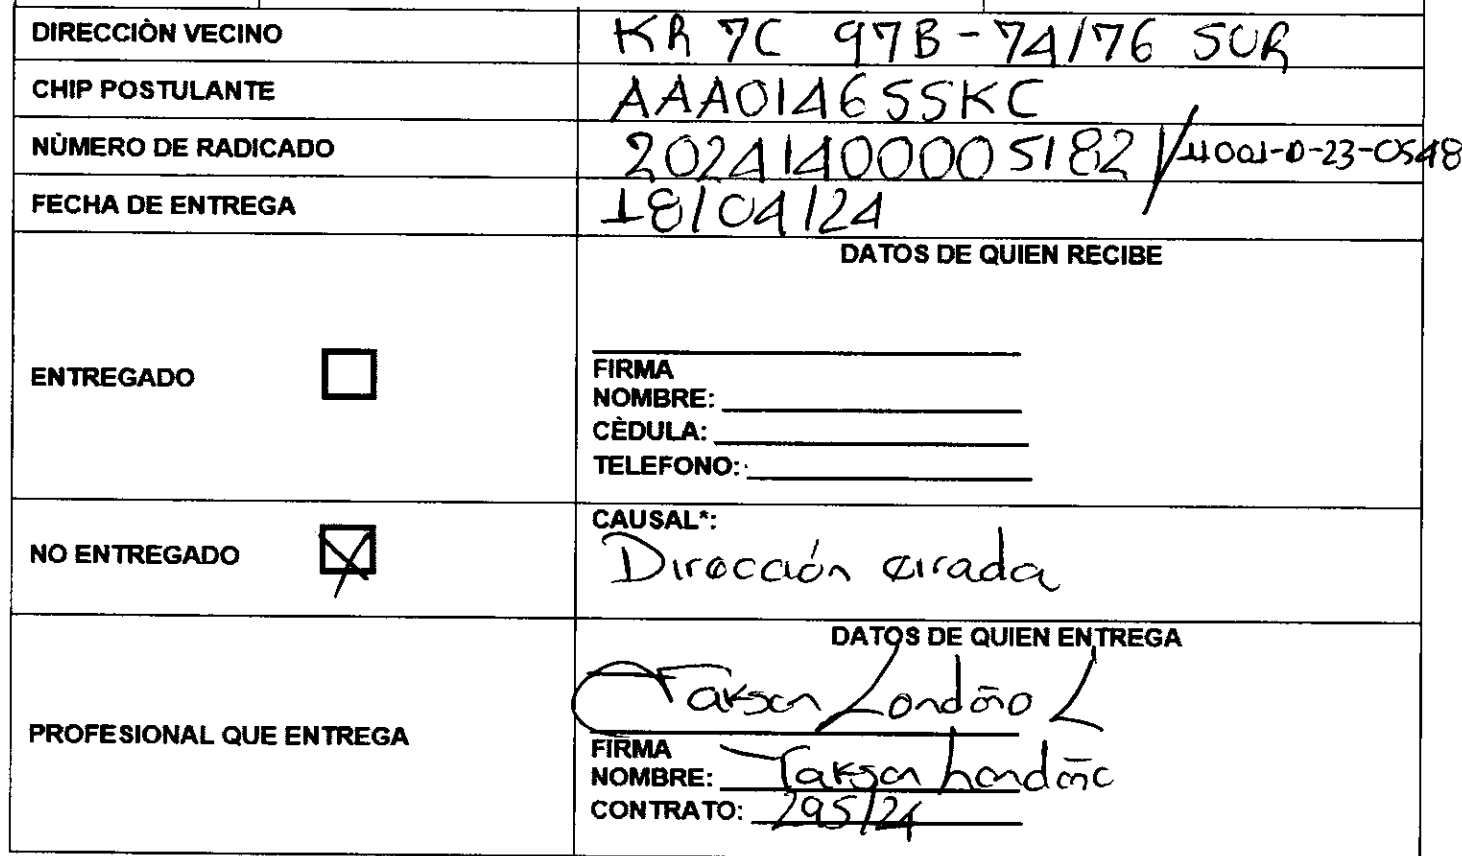 DIRECCIÒN VECINO KR 7C 97B-74/76 SUR
CHIP POSTULANTE AAA0146SSKC
NÙMERO DE RADICADO 20241400005182 / 11001-0-23-0548
FECHA DE ENTREGA 18/04/24
DATOS DE QUIEN RECIBE
ENTREGADO
FIRMA
NOMBRE:
CÈDULA:
TELEFONO:
NO ENTREGADO X
CAUSAL*:
Dirección errada
DATOS DE QUIEN ENTREGA
PROFESIONAL QUE ENTREGA
Jakson Londoño L
FIRMA
NOMBRE: Jakson Londoño
CONTRATO: 295/24